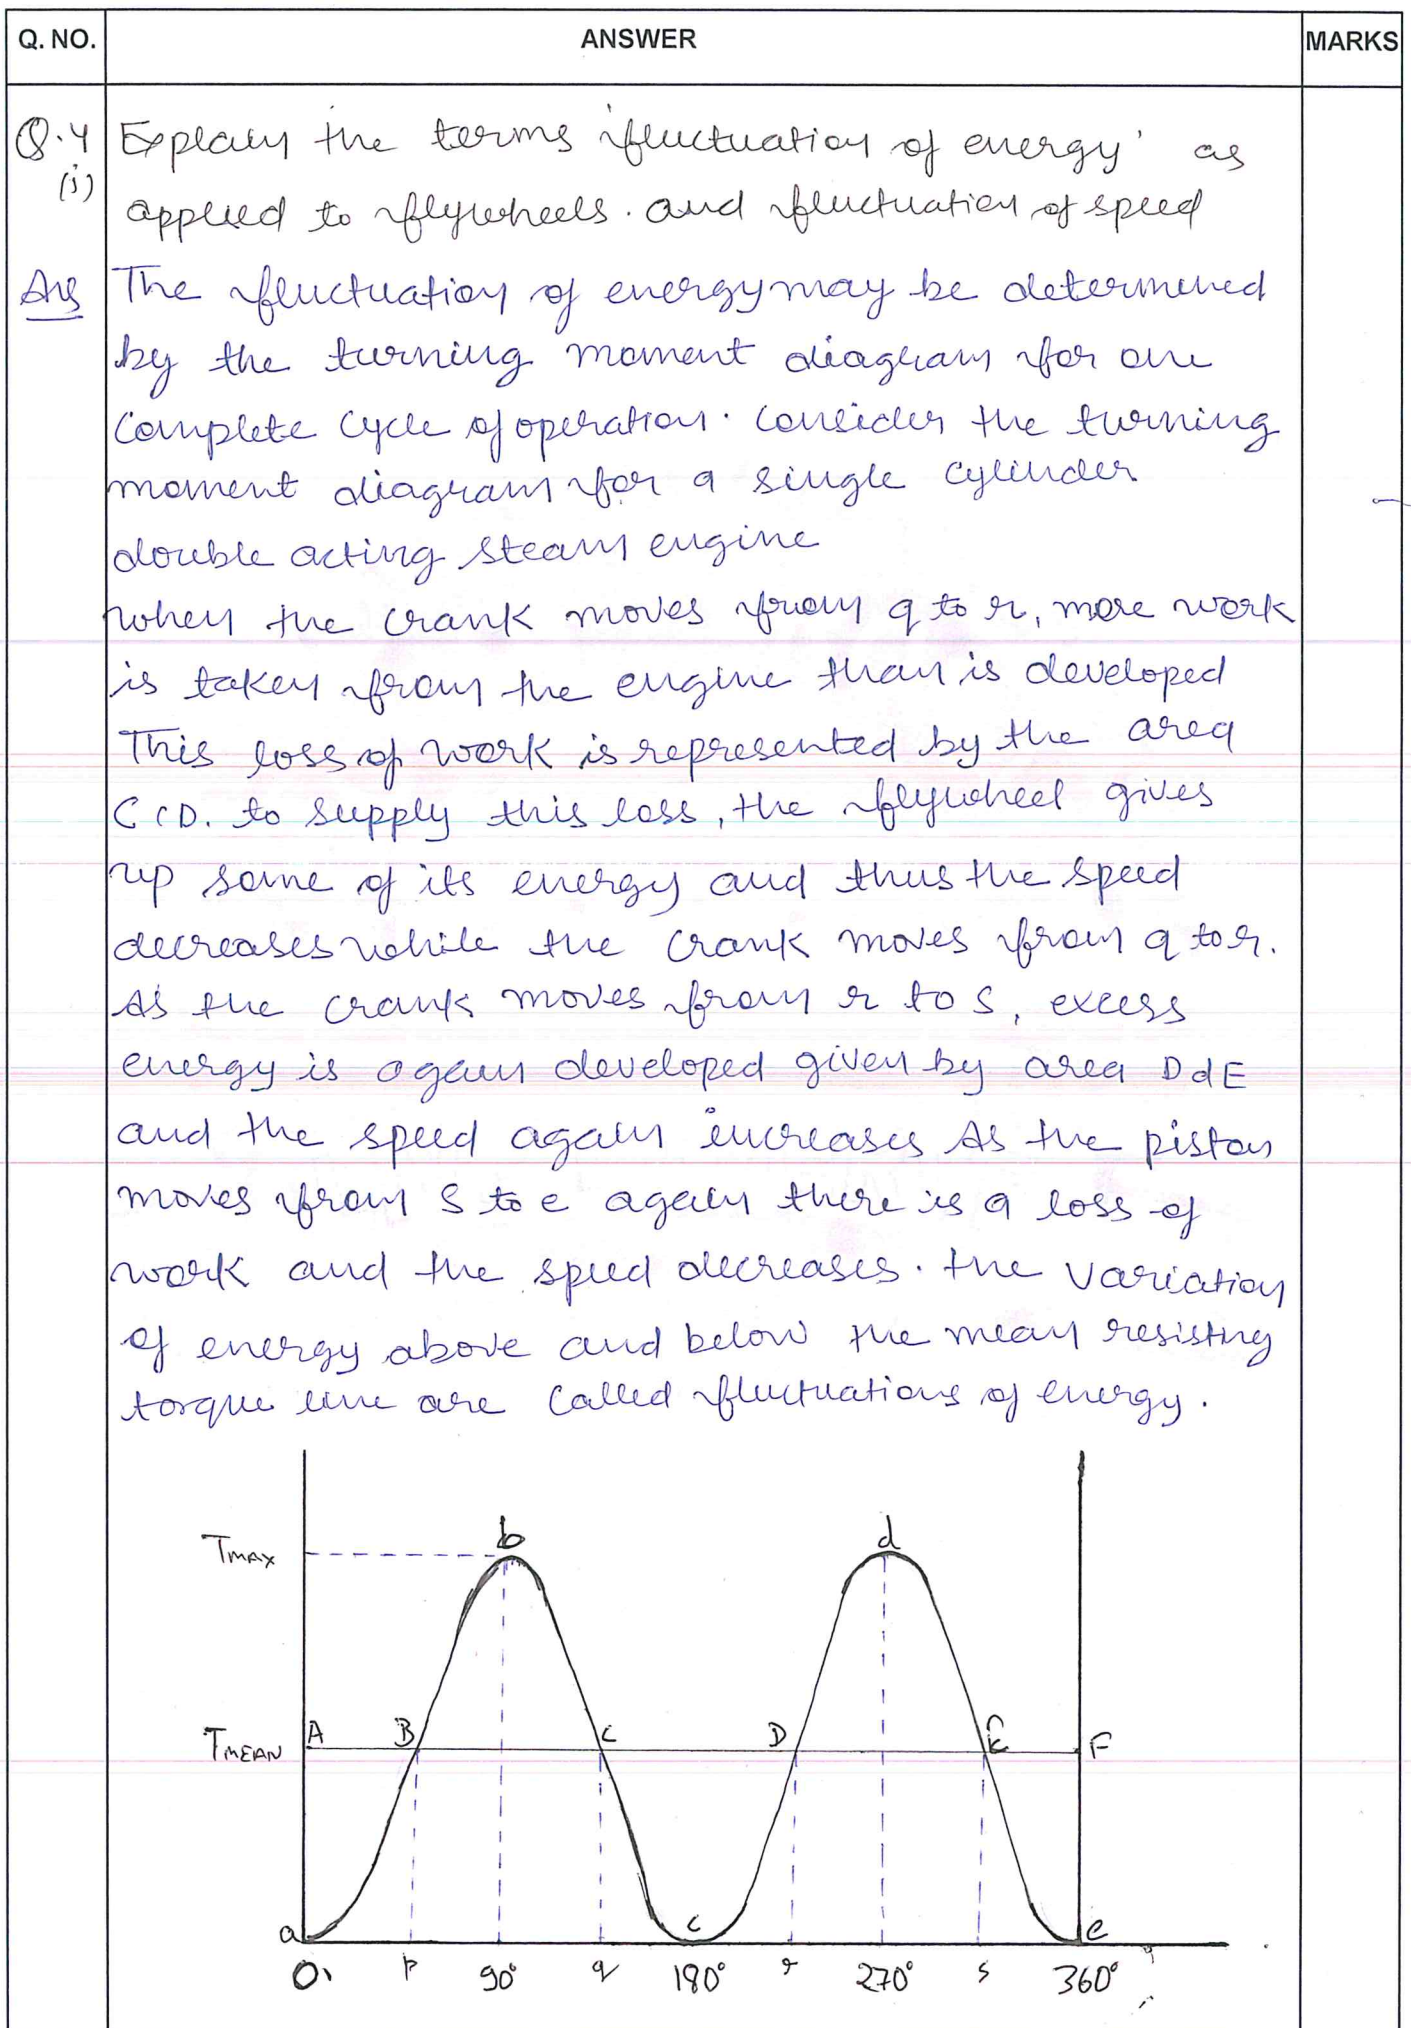 Q. NO. ANSWER MARKS
Q.4 Explain the terms 'fluctuation of energy' as
(i) applied to flywheels. and fluctuation of speed
Ans The fluctuation of energy may be determined
by the turning moment diagram for one
complete cycle of operation. Consider the turning
moment diagram for a single cylinder
double acting steam engine
when the crank moves from q to r, more work
is taken from the engine than is developed
This loss of work is represented by the area
C c D. to supply this loss, the flywheel gives
up some of its energy and thus the speed
decreases while the crank moves from q to r.
As the crank moves from r to s, excess
energy is again developed given by area D d E
and the speed again increases As the piston
moves from s to e again there is a loss of
work and the speed decreases. the variation
of energy above and below the mean resisting
torque line are called fluctuations of energy.
TMAX b d
TMEAN A B C D E F
a c e
0 p 90° q 180° r 270° s 360°